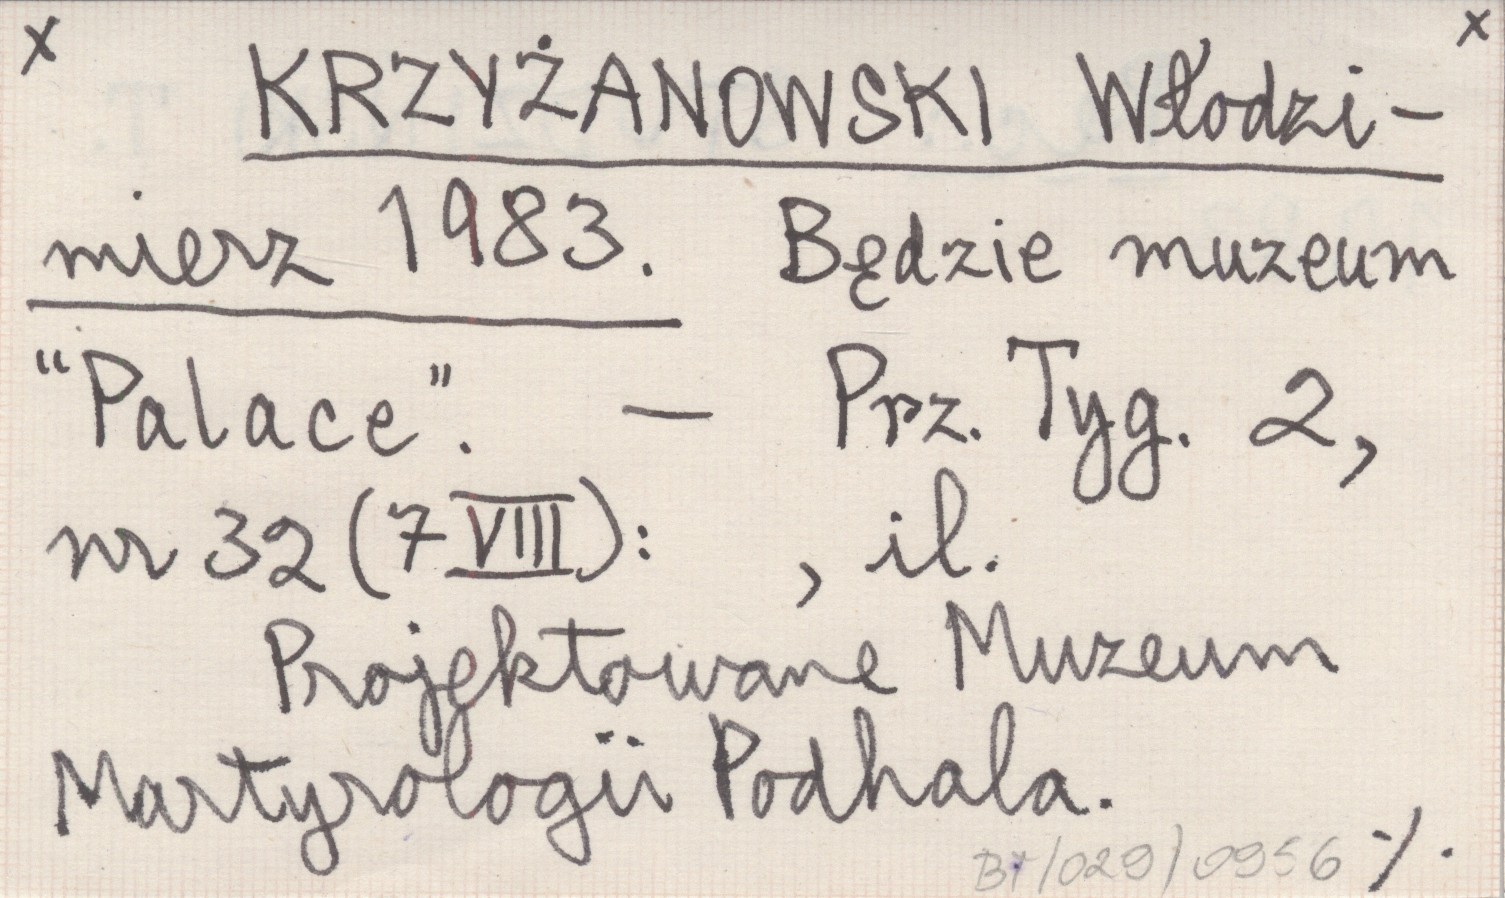 x x
KRZYŻANOWSKI Włodzi-
mierz 1983. Będzie muzeum
"Palace". — Prz. Tyg. 2,
nr 32 (7 VIII): , il.
Projektowane Muzeum
Martyrologii Podhala.
BT/029/0956 ·/.